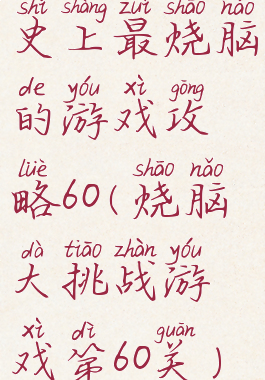 shǐ shàng zuì shāo nǎo
史上最烧脑
de yóu xì gōng
的游戏攻
lüè shāo nǎo
略60(烧脑
dà tiāo zhàn yóu
大挑战游
xì dì guān
戏第60关)